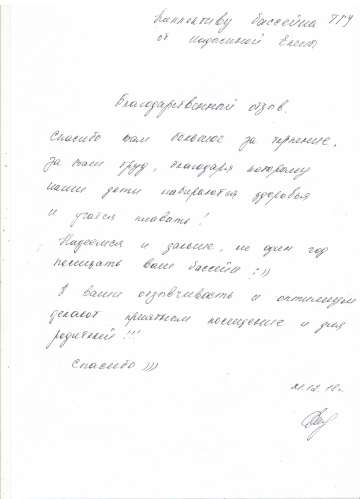 Коллективу бассейна ТГУ
от Елены
Благодарственный отзыв.
Спасибо вам большое за терпение,
за ваш труд, благодаря которому
наши дети набираются здоровья
и учатся плавать!
Надеемся и дальше, не один год
посещать ваш бассейн :))
А ваши отзывчивость и оптимизм
делают приятным посещение и для
родителей!!!
Спасибо )))